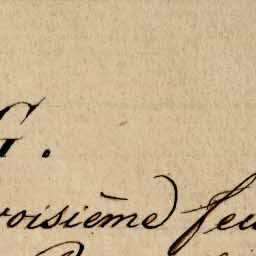 G.
roisième) feu